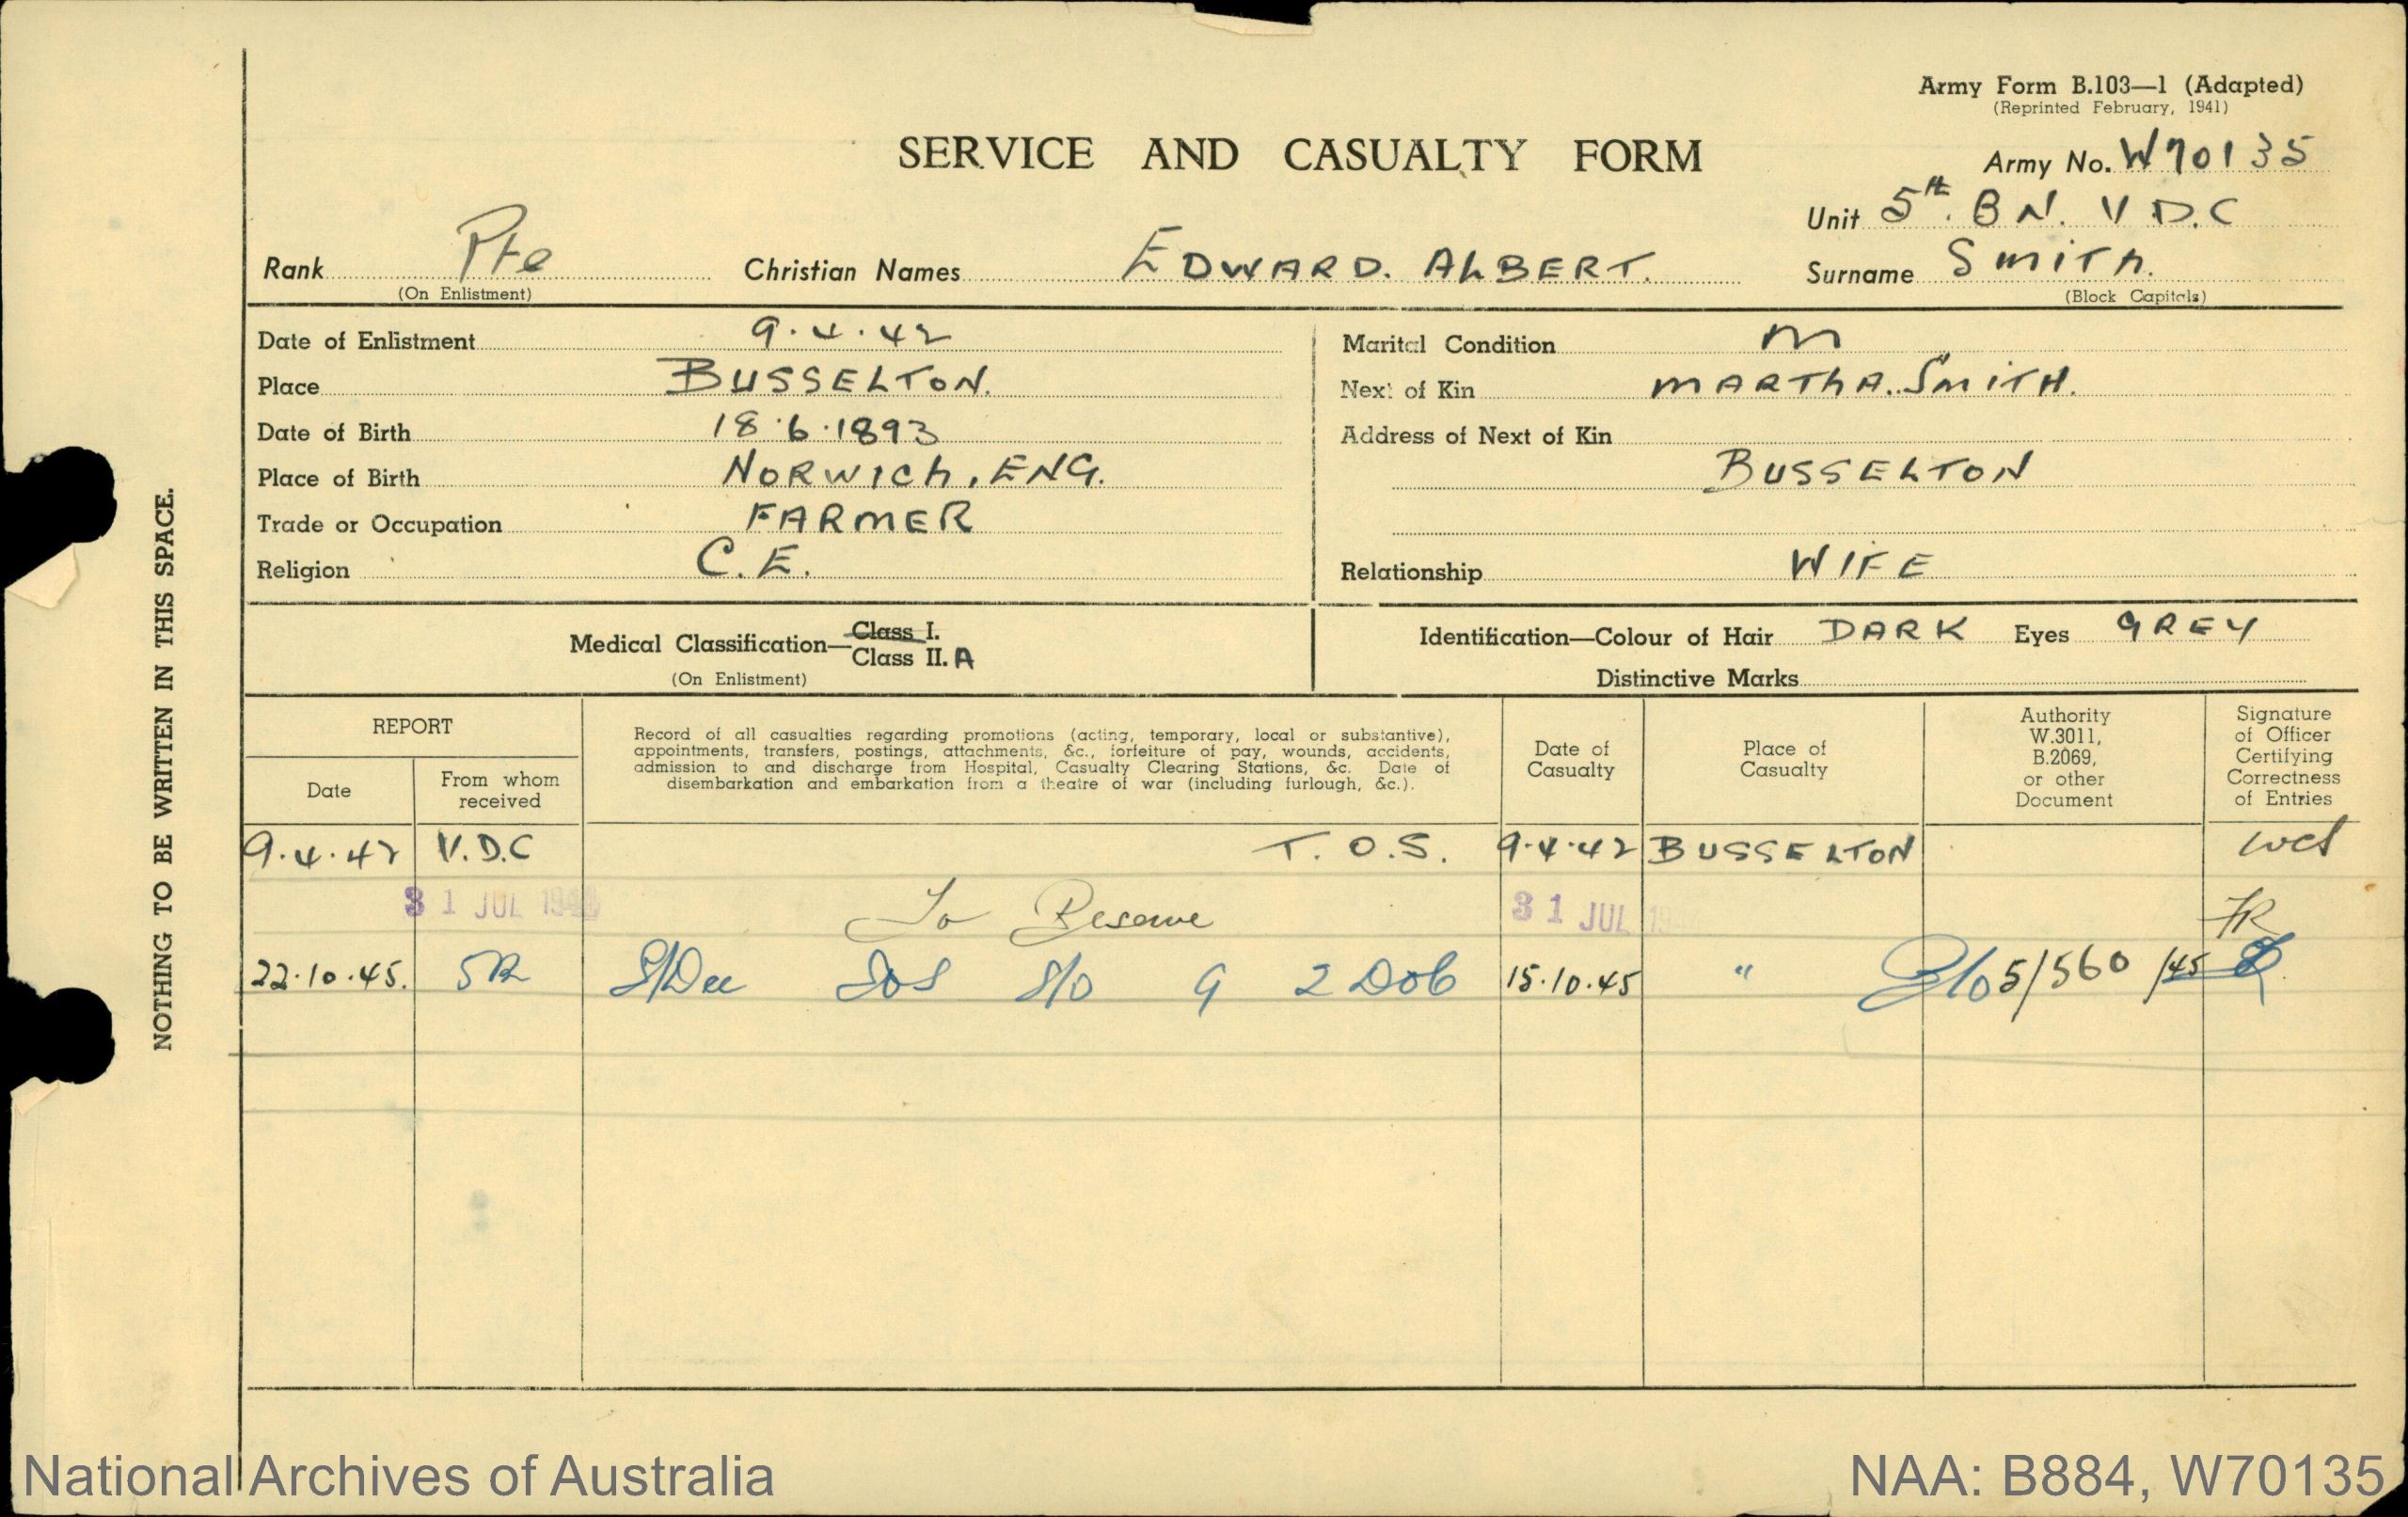 Army Form B.103—1 (Adapted)
(Reprinted February, 1941)
SERVICE AND CASUALTY FORM
Army No. W70135
Unit 5th. BN. V D.C
Rank Pte Christian Names EDWARD. ALBERT. Surname SMITH.
(On Enlistment) (Block Capitals)
Date of Enlistment 9.4.42
Place BUSSELTON.
Date of Birth 18.6.1893
Place of Birth NORWICH, ENG.
Trade or Occupation FARMER
Religion C.E.
Marital Condition M
Next of Kin MARTHA. SMITH.
Address of Next of Kin
BUSSELTON
Relationship WIFE
Medical Classification—Class I.
Class II. A
(On Enlistment)
Identification—Colour of Hair DARK Eyes GREY
Distinctive Marks
REPORT
Date
From whom received
Record of all casualties regarding promotions (acting, temporary, local or substantive),
appointments, transfers, postings, attachments, &c., forfeiture of pay, wounds, accidents,
admission to and discharge from Hospital, Casualty Clearing Stations, &c. Date of
disembarkation and embarkation from a theatre of war (including furlough, &c.).
Date of Casualty
Place of Casualty
Authority W.3011, B.2069, or other Document
Signature of Officer Certifying Correctness of Entries
9.4.42 V.D.C T.O.S. 9.4.42 BUSSELTON
31 JUL To Reserve 31 JUL
22.10.45. 15.10.45 " 5/560 /45
NOTHING TO BE WRITTEN IN THIS SPACE.
National Archives of Australia
NAA: B884, W70135